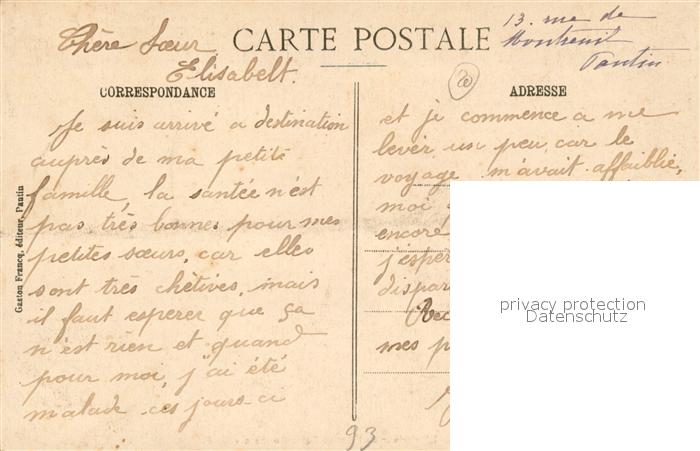 Chère Sœur
Elisabelt.
CARTE POSTALE
13. rue de
Montreuil
Pantin
CORRESPONDANCE
Je suis arrivé a destination
auprès de ma petite
famille, la santée n'est
pas très bonnes pour mes
petites sœurs, car elles
sont très chétives, mais
il faut esperer que ça
n'est rien et quand
pour moi, j'ai été
malade ces jours-ci
ADRESSE
et je commence a me
lever un peu car le
voyage m'avait affaiblie,
moi
encore
j'esper
dispar
Rec
mes p
Gaston Francq, éditeur, Pantin
93
privacy protection
Datenschutz